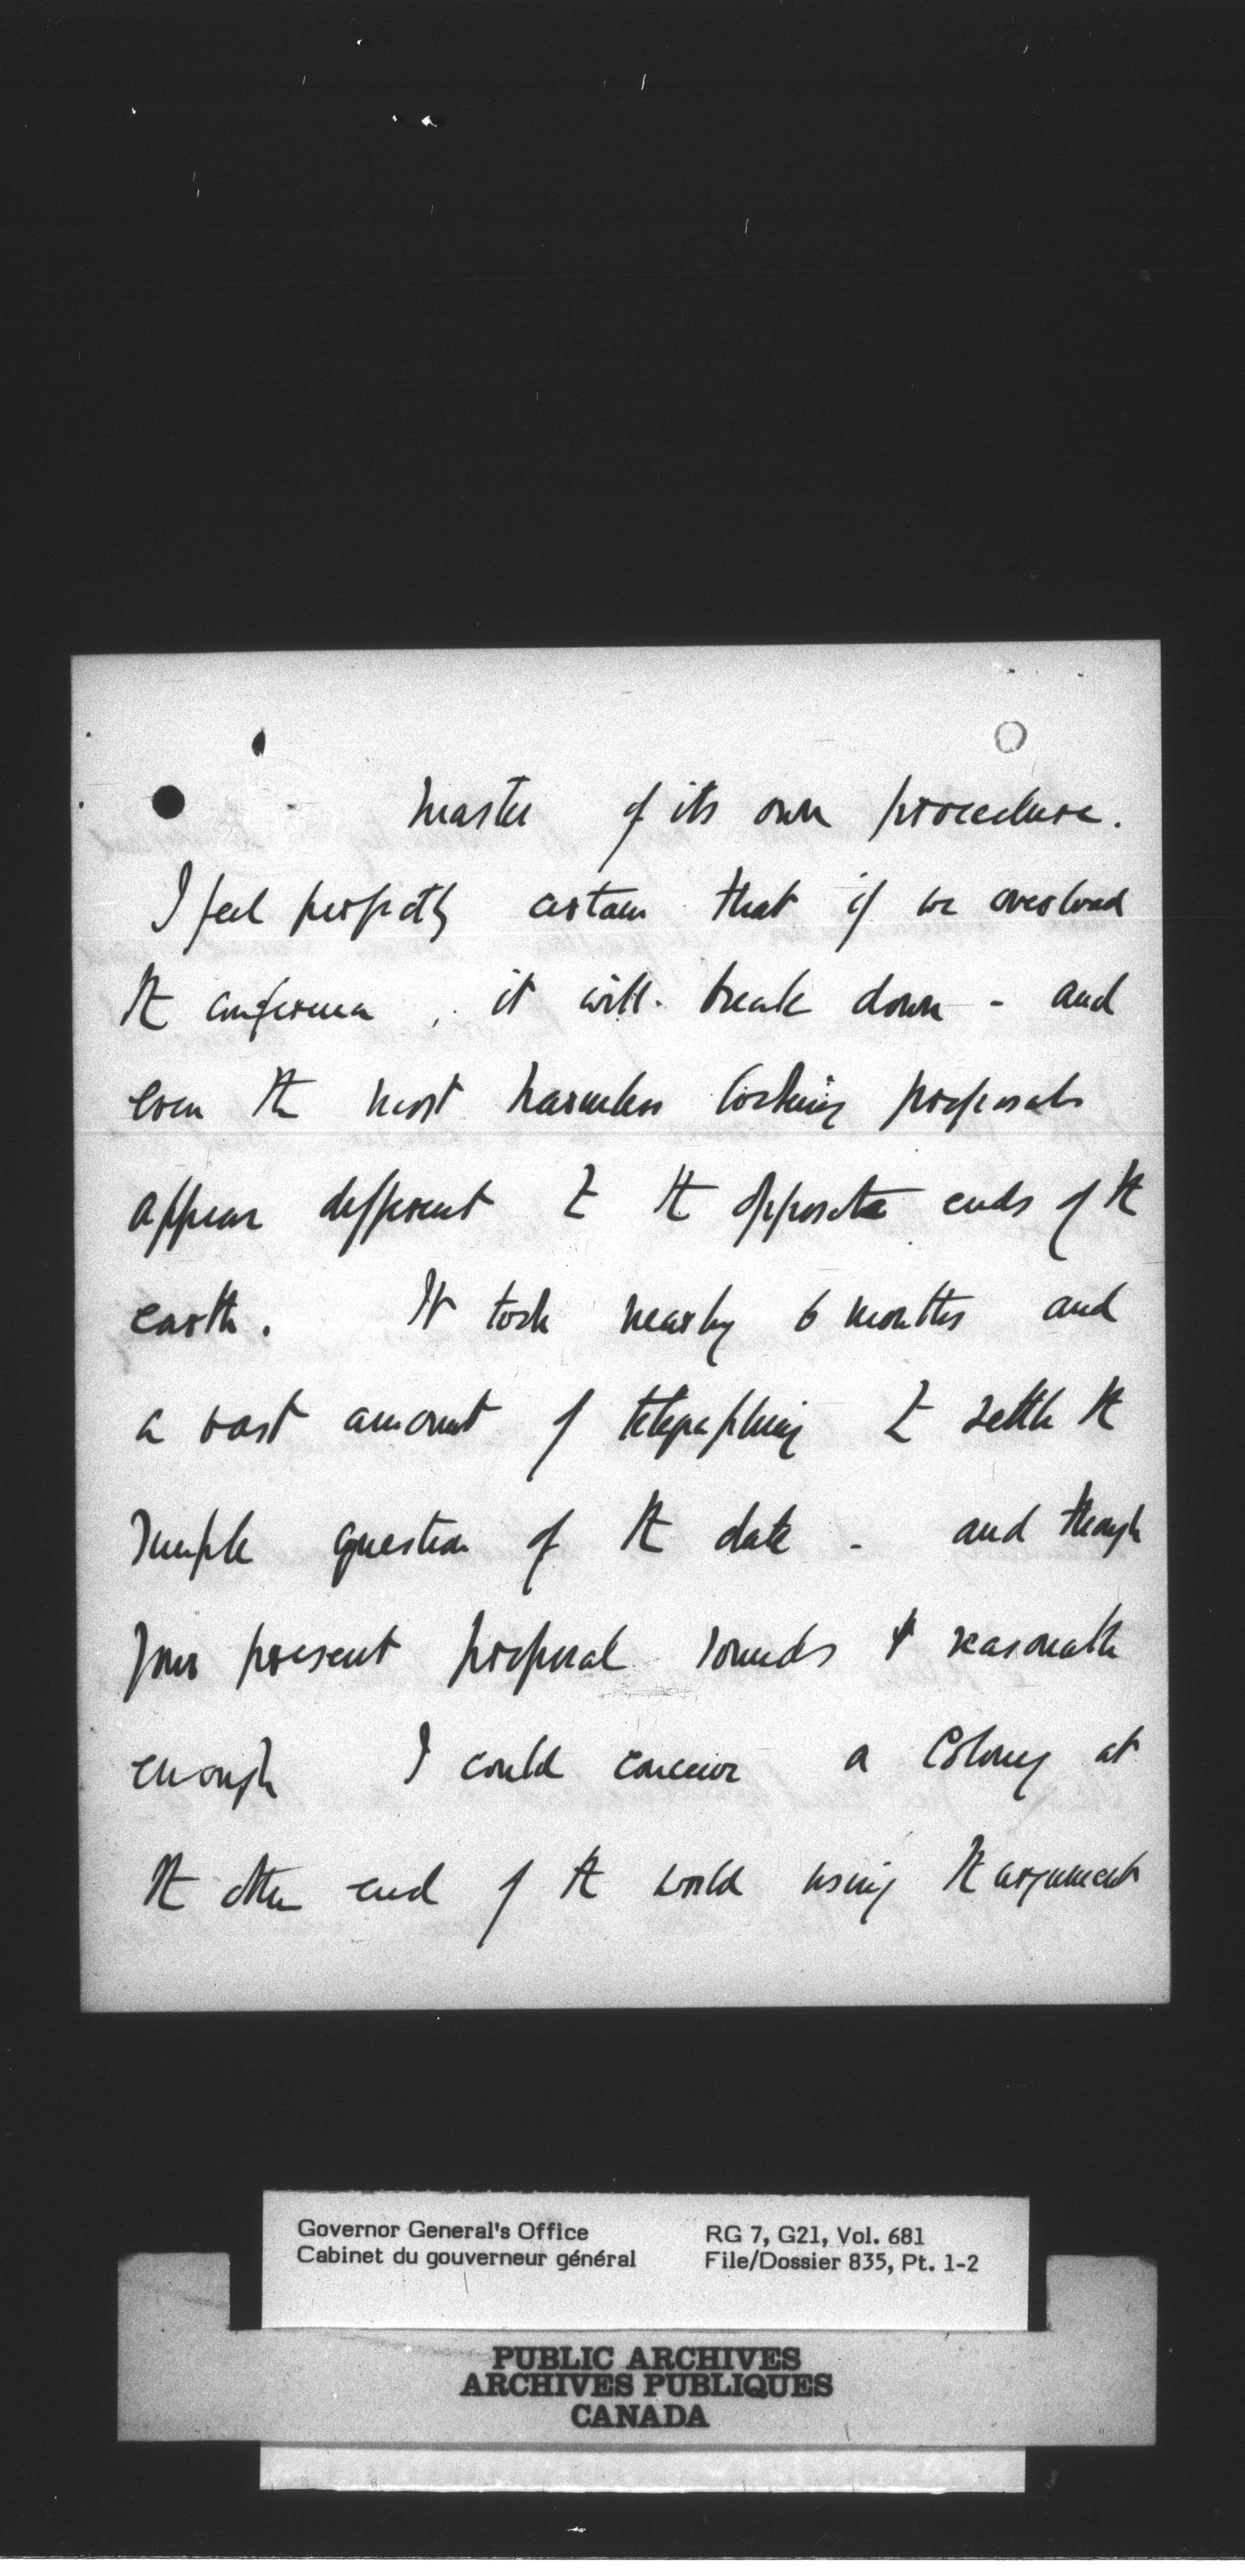 master of its own procedure.
I feel perfectly certain that if we overload
the conference, it will break down - and
even the most harmless looking proposals
appear different to the opposite ends of the
earth. It took nearly 6 months and
a vast amount of telegraphing to settle the
simple question of the date - and though
your present proposal sounds reasonable
enough I could conceive a Colony at
the other end of the world using the argument
Governor General's Office
Cabinet du gouverneur général
RG 7, G21, Vol. 681
File/Dossier 835, Pt. 1-2
PUBLIC ARCHIVES
ARCHIVES PUBLIQUES
CANADA